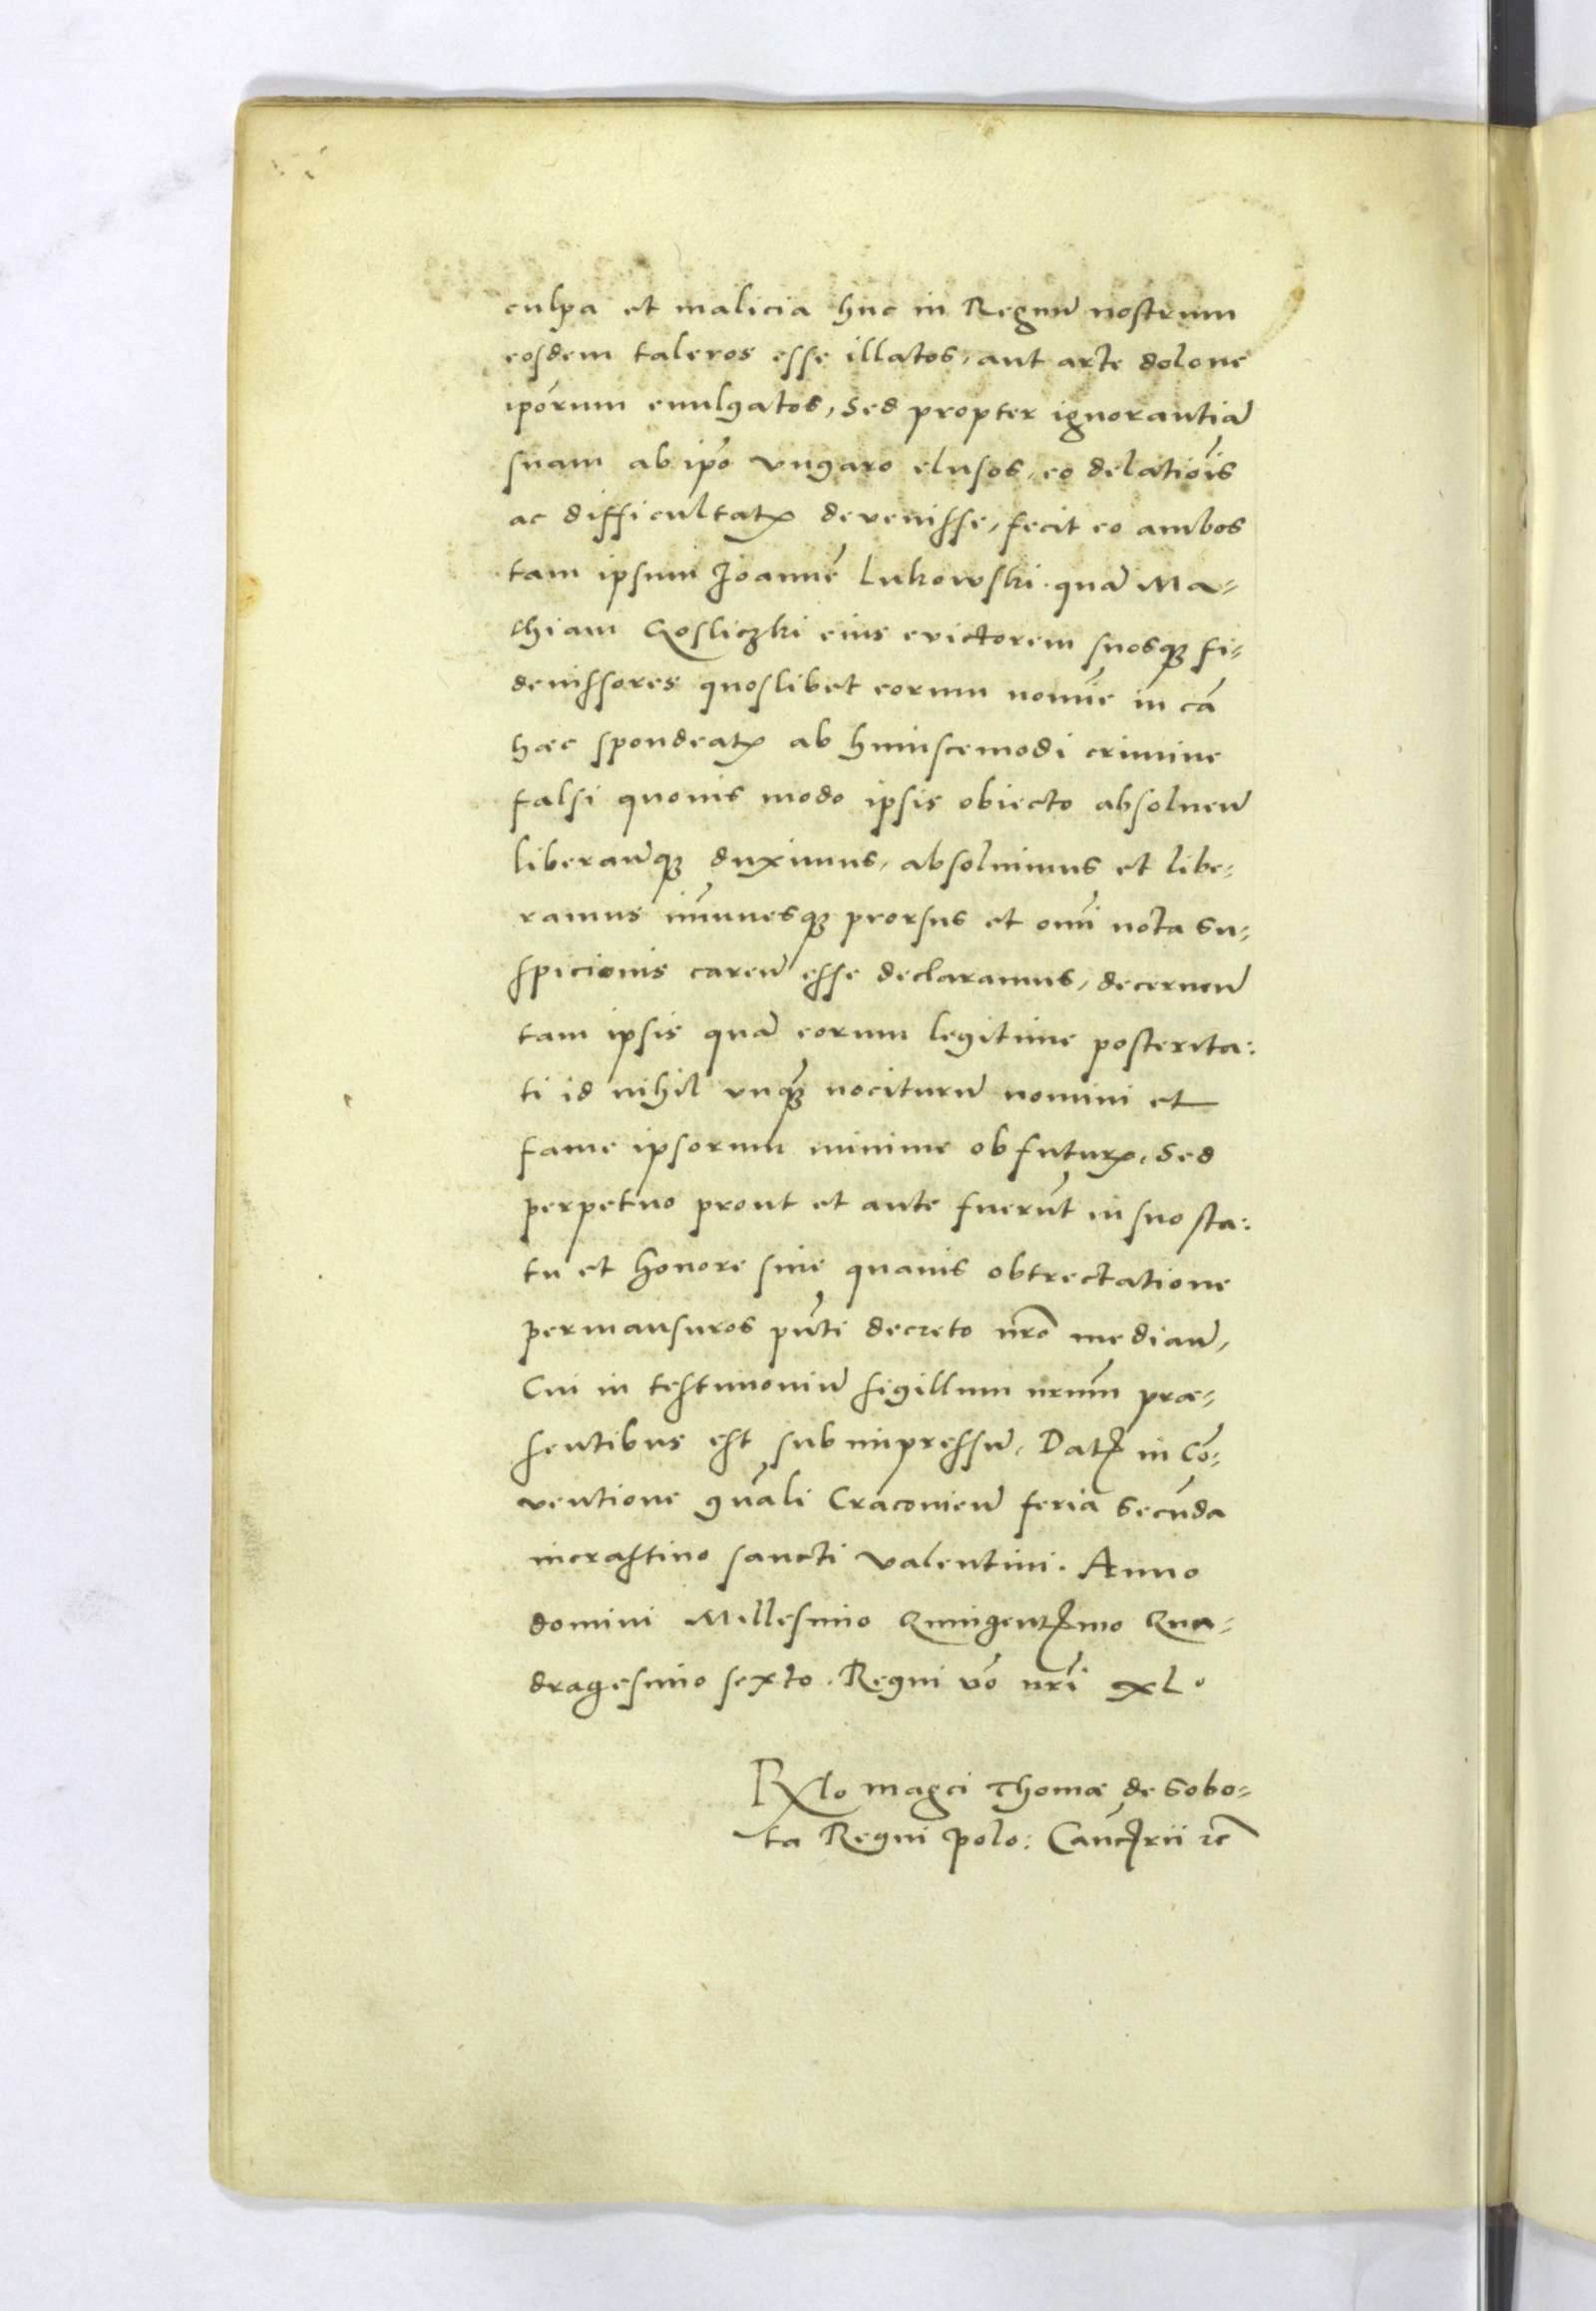 culpa et malicia huc in Regnū nostrum
eosdem taleros esse illatos, aut arte dolove
ipōrum evulgatos, sed propter ignorantiā
suam ab ipō vngaro elusos, eo delatiōis
ac difficultatꝭ devenisse, fecit eo ambos
tam ipsum Joannē Lukowski quā Ma-
thiam Gosliczki eius evictorem suosqꝫ fi-
deiussores quoslibet eorum nomīe in cā
hac spondeatꝭ ab huiuscemodi crimine
falsi quovis modo ipsis obiecto absolueñ
liberañqꝫ duximus, absoluimus et libe-
ramus īmunesqꝫ prorsus et omī nota su-
spicionis careñ esse declaramus, decerneñ
tam ipsis quā eorum legitime posterita:
ti id nihil vnqꝫ nociturū nomini et
fame ipsorum minime obfuturꝭ, sed
perpetuo prout et ante fuerūt in suo sta:
tu et honore sine quavis obtrectatione
permansuros pñti decreto nrō mediañ,
Cui in testimoniū sigillum nrūm præ-
sentibus est subimpressū, Datꝭ in Cō-
ventione gñali Cracovieñ feria secūda
incrastino sancti valentini. Anno
domini Millesimo Quingentꝭmo Qua-
dragesimo sexto. Regni vō nrī xl.
Rlo magci Thomæ de Sobo-
ta Regni polo: Cancꝭrii ⁊c̄